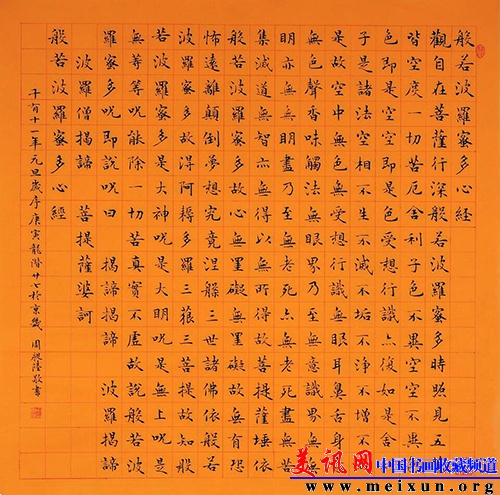 般若波羅蜜多心經
觀自在菩薩行深般若波羅蜜多時照見五
皆空度一切苦厄舍利子色不異空空不異
色即是空空即是色受想行識亦復如是舍
子是諸法空相不生不滅不垢不淨不增不
是故空中無色無受想行識無眼耳鼻舌身
無色聲香味觸法無眼界乃至無意識界無無
明亦無無明盡乃至無老死亦無老死盡無苦
集滅道無智亦無得以無所得故菩提薩埵依
般若波羅蜜多故心無罣礙無罣礙故無有恐
怖遠離顛倒夢想究竟涅槃三世諸佛依般若
波羅蜜多故得阿耨多羅三藐三菩提故知般
若波羅蜜多是大神呪是大明呪是無上呪是
無等等呪能除一切苦真實不虛故說般若波
羅蜜多呪即說呪曰 揭諦揭諦 波羅揭諦
波羅僧揭諦 菩提薩婆訶
般若波羅蜜多心經
千有十一年元旦歲序庚寅龍潛廿七於京畿 周 敬書
美讯网 中国书画收藏频道
www.meixun.org